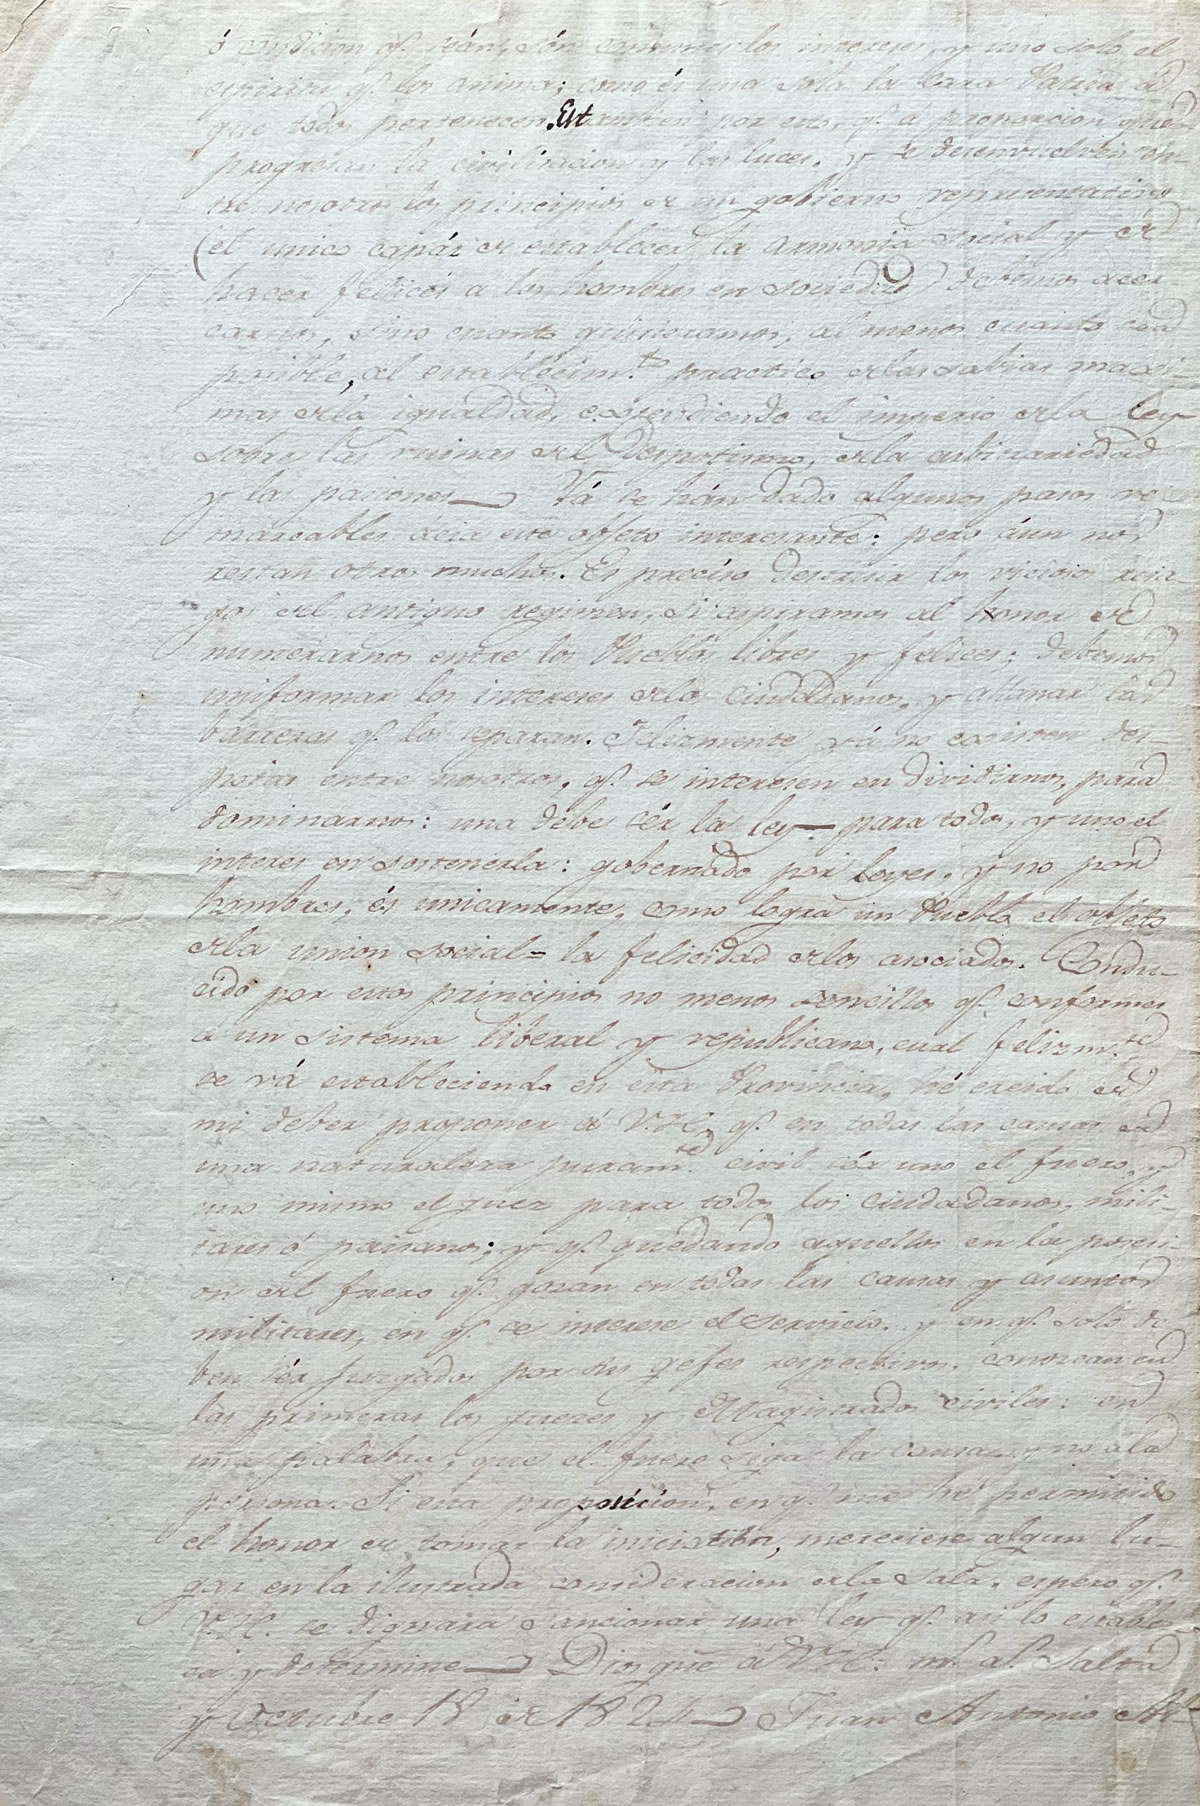 ó condicion qᵉ seán, són comunes los intereses, y uno solo el
espiritu qᵉ los anima; como és una sola la Cara Patria á
que todos pertenecen. Est tambien por eso, qᵉ a proporcion que
progresan la civilizacion y las luces, y se desenvuelven en-
tre nosotros los principios de un gobierno representativo
(el unico capáz de establecer la armonia social y de
hacer felices a los hombres en sociedad) debemos acer
carnos, sino cuanto quisieramos, al menos cuanto séa
posible, al establecimᵗᵒ practico de las sabias maxi-
mas de la igualdad, extendiendo el imperio de la ley
sobre las ruinas del Despotismo, de la arbitrariedad
y las pasiones— Yá se hán dado algunos pasos re
marcables ácia este objeto interesante: pero áun nos
restan otros muchos. Es preciso destruir los vicios
del antiguo regimen, si aspiramos al honor de
numerarnos entre los Pueblos libres y felices; debemos
uniformar los intereses de los Ciudadanos, y allanar las
barreras qᵉ los separan. Felizmente yá no existen des-
potas entre nosotros, qᵉ se interesen en dividirnos, para
dominarnos: una debe sér la ley— para todos, y uno el
interes en sostenerla: gobernado por leyes, y no por
hombres, és unicamente, como logra un Pueblo el objeto
de la union social= la felicidad de los asociados. Condu-
cido por estos principios no menos sencillos qᵉ conformes
a un sistema liberal y republicano, cual felizmᵗᵉ
se vá estableciendo en esta Provincia, hé creido de
mi deber proponer á V.H. qᵉ en todas las causas de
una naturaleza puramᵗᵉ civil séa uno el fuero, y
uno mismo el juez para todos los ciudadanos, mili-
tares ó paisanos; y qᵉ quedando aquellos en la posesi-
on del fuero qᵉ gozan en todas las causas y asuntos
militares, en qᵉ se interese el servicio, y en qᵉ solo de
ben sér juzgados por sus gefes respectivos, conozcan en
las primeras los jueces y Magistrados civiles: en
una palabra, que el fuero siga la causa, y no a la
persona. Si esta proposicion, en qᵉ me hé permitido
el honor de tomar la iniciatiba, mereciese algun lu-
gar en la ilustrada consideracion de la Sala, espero qᵉ
V.H. se dignara sancionar una ley qᵉ asi lo estable
ca y determine— Dios gue á V.H. mˢ aˢ Salta
y Octubre 18 de 1824— Juan Antonio Al-